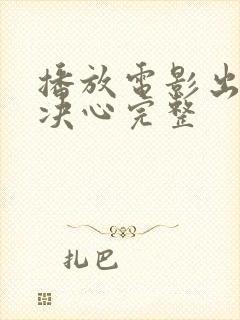 播放電影出
决心完整
扎巴